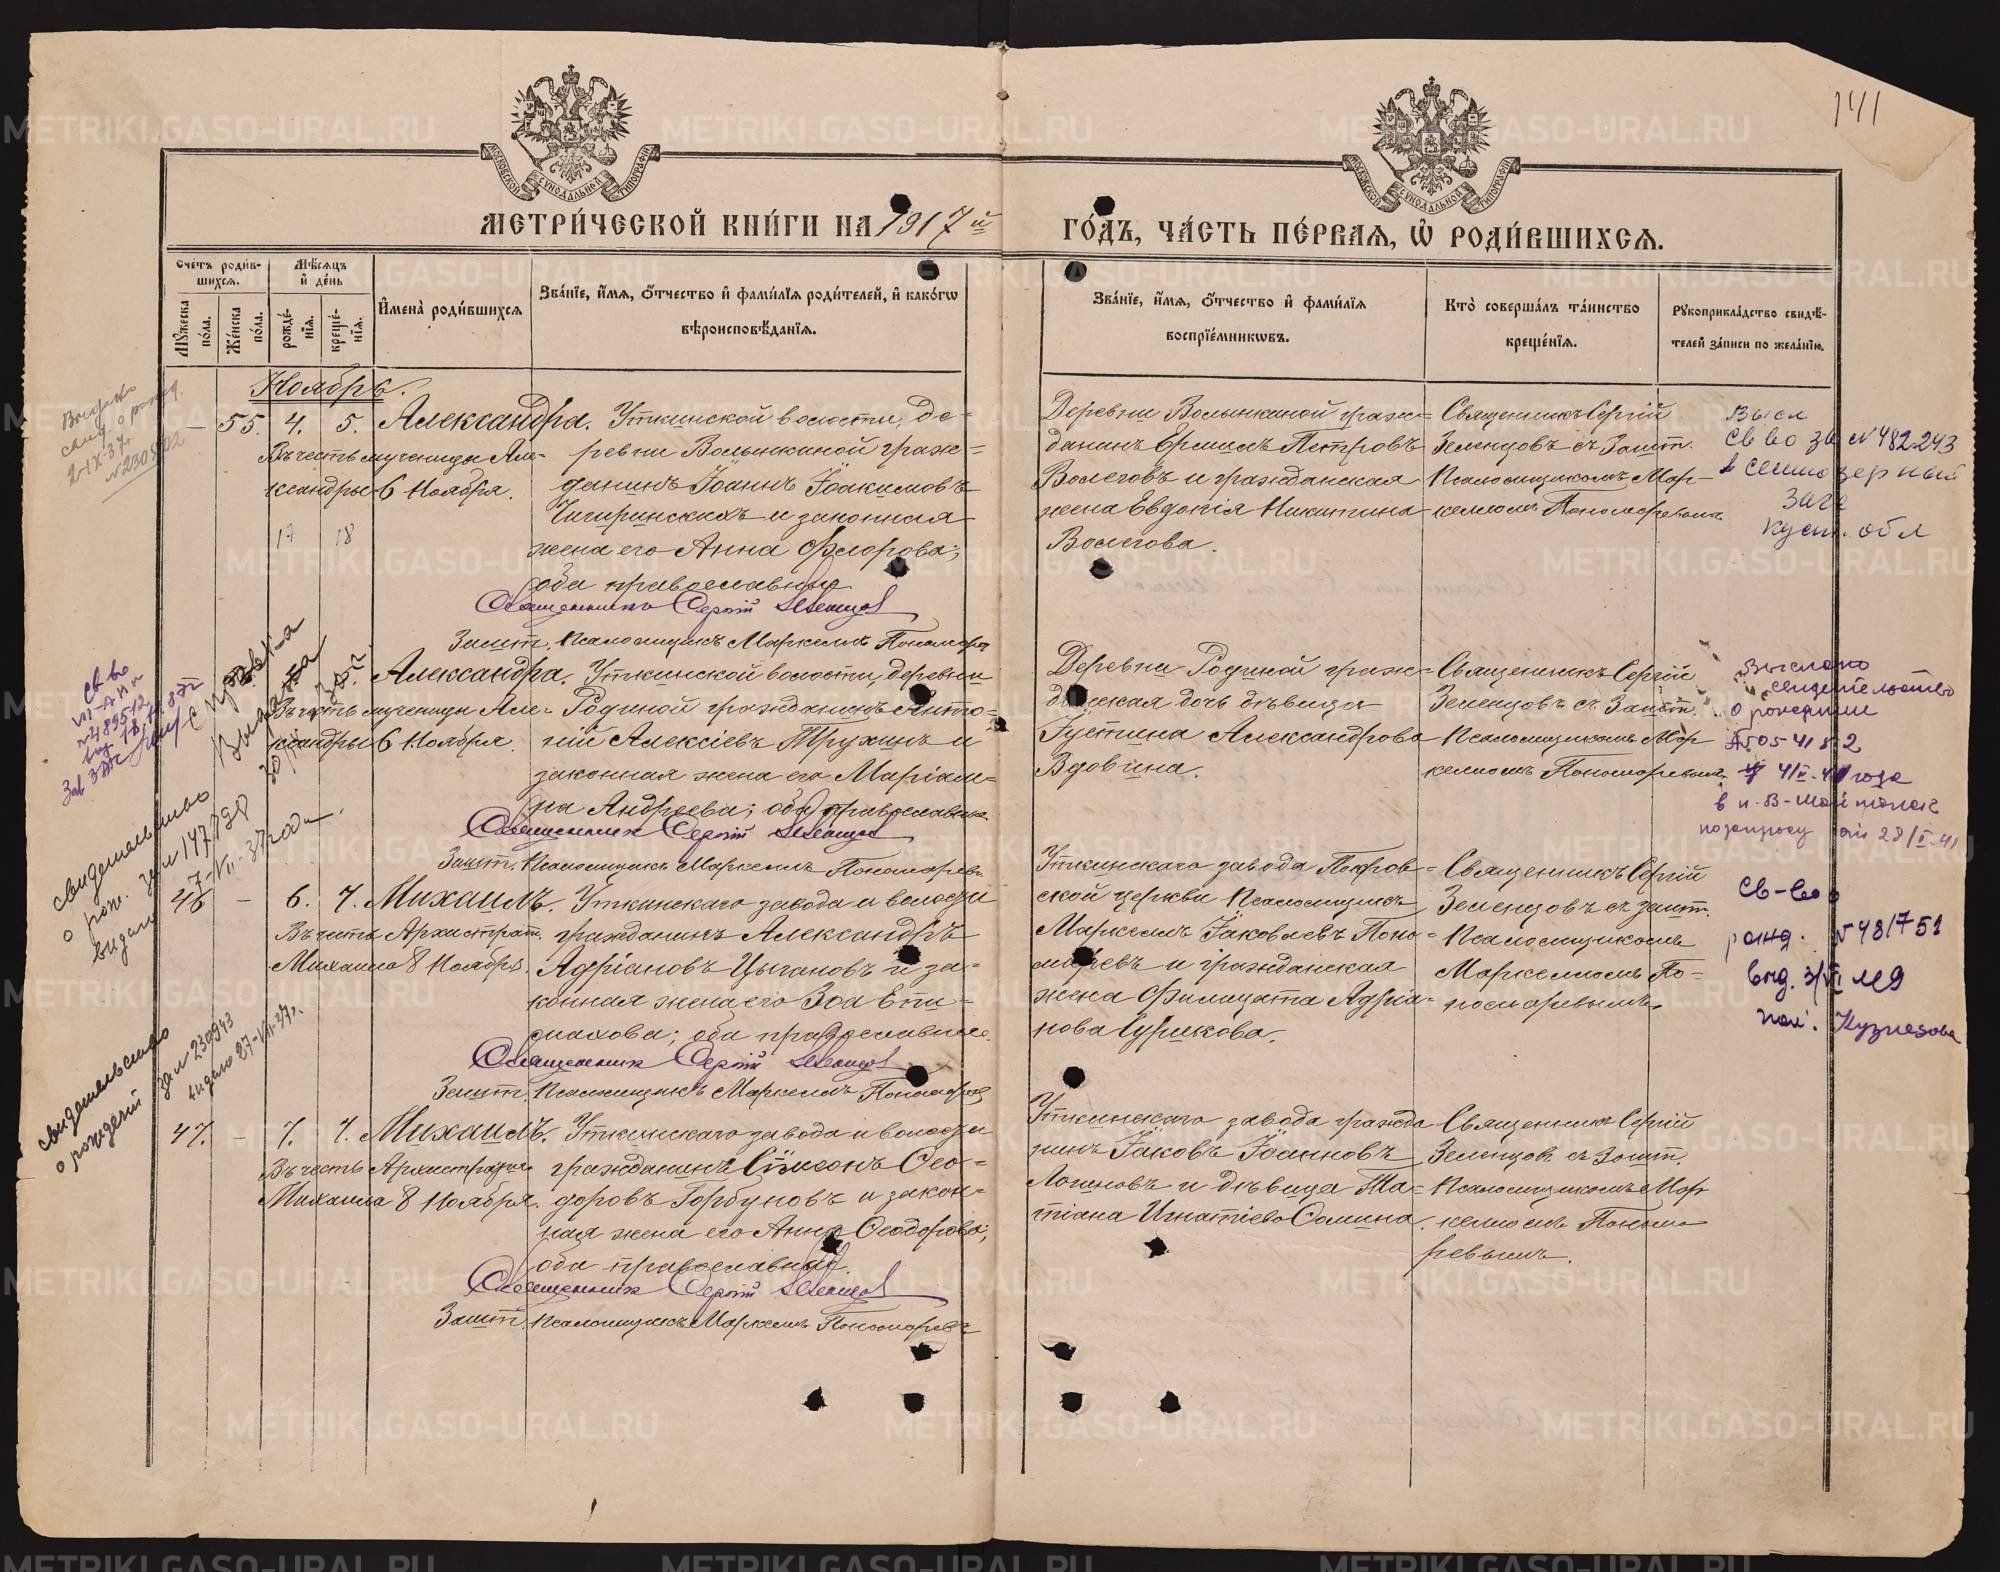 141
МЕТРИ́ЧЕСКОЙ КНИ́ГИ НА 1917й ГО́ДЪ, ЧА́СТЬ ПЕ́РВАЯ, Ѡ РОДИ́ВШИХСЯ.
Сче́тъ роди́в-
шихся.
Мꙋ́жеска
по́ла.
Же́нска
по́ла.
Мѣ́сяцъ
и҆ де́нь
рожде́-
нїя.
креще́-
нїя.
И҆мена̀ роди́вшихся
Зва́нїе, и҆́мя, ѻ҆́тчество и҆ фами́лїя роди́телей, и҆ како́гѡ
вѣроисповѣ́данїя.
Зва́нїе, и҆́мя, ѻ҆́тчество и҆ фами́лїя
воспрїе́мникѡвъ.
Кто̀ соверша́лъ та́инство
креще́нїя.
Рꙋкоприкла́дство свидѣ́-
телей за́писи по жела́нїю.
Ноябрь.
— 55. 4. 5. Александра.
Въ честь мученицы Але-
ксандры 6 Ноября.
17 18
Уткинской волости, де-
ревни Волынкиной граж-
данинъ Іоаннъ Іоакимовъ
Чигиринскихъ и законная
жена его Анна Флорова;
оба православные
Священникъ Сергій Зеленцов
Зашт. Псаломщикъ Маркеллъ Пономарев
Деревни Волынкиной граж-
данинъ Ермилъ Петровъ
Волеговъ и гражданская
жена Евдокія Никитина
Волегова.
Священникъ Сергій
Зеленцовъ съ Зашт.
Псаломщикомъ Мар-
келломъ Пономаревымъ
Высл
св во зв N 482243
в
загс
обл
Александра.
Въ честь мученицы Але-
ксандры 6 Ноября.
Уткинской волости, деревни
Родиной гражданинъ Анто-
ній Алексіевъ Трухинъ и
законная жена его Маріам-
на Андреева; оба православные
Священникъ Сергій Зеленцов
Зашт. Псаломщикъ Маркеллъ Пономарев
Деревни Родиной граж-
данская дочь дѣвица
Іустина Александрова
Вдовина.
Священникъ Сергій
Зеленцовъ съ Зашт.
Псаломщикомъ Мар
келломъ Пономаревымъ
Выслано
свидетельство
о рождении
4/II-41 года
28/I-41
46 — 6. 7. Михаилъ.
Въ честь Архистрат.
Михаила 8 Ноября.
Уткинскаго завода и волости
гражданинъ Александръ
Адріановъ Цыгановъ и за-
конная жена его Зоя Епи-
махова; оба православные.
Священникъ Сергій Зеленцов
Зашт. Псаломщикъ Маркеллъ Пономарев
Уткинскаго завода Покров-
ской церкви Псаломщикъ
Маркеллъ Іаковлевъ Поно-
маревъ и гражданская
жена Филицата Адріа-
нова Чурикова.
Священникъ Сергій
Зеленцовъ съ зашт.
Псаломщикомъ
Маркелломъ По-
номаревымъ.
Св-во о
рожд. N 481751
выд.
Кузнецова
47. — 7. 7. Михаилъ.
Въ честь Архистратига
Михаила 8 Ноября.
Уткинскаго завода и волости
гражданинъ Сімеонъ Ѳео-
доровъ Горбуновъ и закон-
ная жена его Анна Ѳеодорова;
оба православные.
Священникъ Сергій Зеленцов
Зашт. Псаломщикъ Маркеллъ Пономаревъ
Уткинскаго завода гражда
нинъ Іаковъ Іоанновъ
Логиновъ и дѣвица Та-
тіана Игнатіева Сомина.
Священникъ Сергій
Зеленцовъ съ Зашт.
Псаломщикомъ Мар
келломъ Понома-
ревымъ.
Выдано
свид. о рожд.
2-IX-37г
N 230502
Св во
N 489512
свидетельство
о рож. за N 147728
выдано 7-VII-37 года.
свидетельство
о рождении за N 230943
выдано 27-VIII-37г.
METRIKI.GASO-URAL.RU